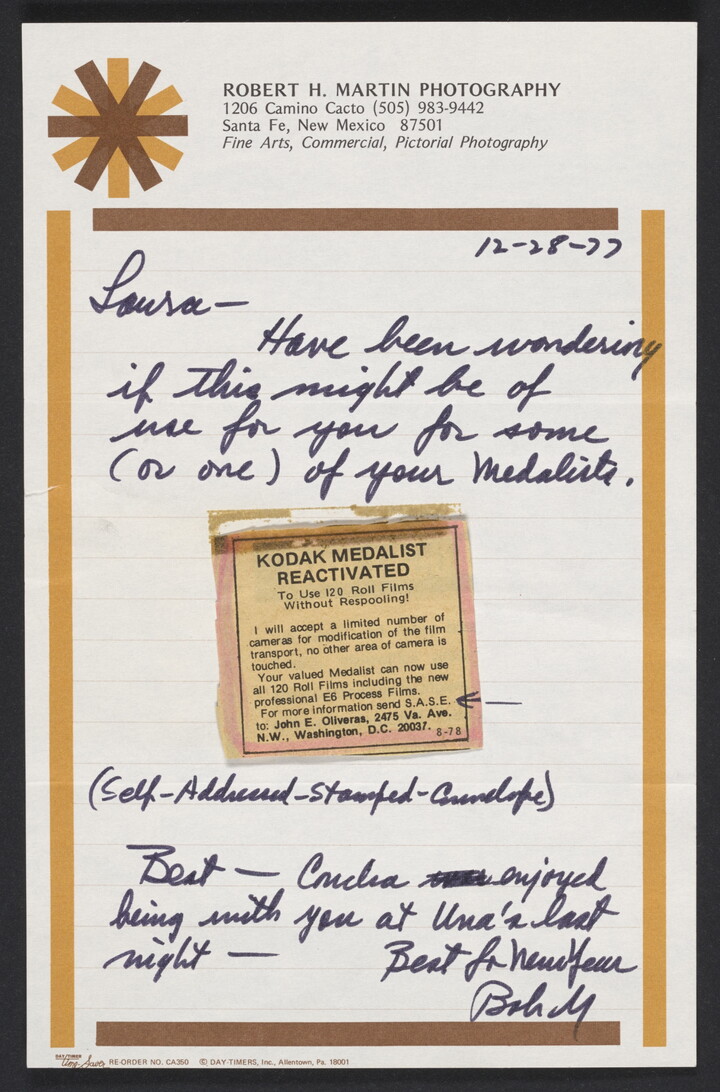 ROBERT H. MARTIN PHOTOGRAPHY
1206 Camino Cacto (505) 983-9442
Santa Fe, New Mexico 87501
Fine Arts, Commercial, Pictorial Photography
12-28-77
Laura—
Have been wondering
if this might be of
use for you for some
(or one) of your Medalists.
KODAK MEDALIST
REACTIVATED
To Use 120 Roll Films
Without Respooling!
I will accept a limited number of
cameras for modification of the film
transport, no other area of camera is
touched.
Your valued Medalist can now use
all 120 Roll Films including the new
professional E6 Process Films.
For more information send S.A.S.E.
to: John E. Oliveras, 2475 Va. Ave.
N.W., Washington, D.C. 20037. 8-78
(Self-Addressed-Stamped-Envelope)
Best — enjoyed
being with you at Una's last
night — Best for New Year
Bob M
DAY/TIMER
Time Saver RE-ORDER NO. CA350 © DAY-TIMERS, Inc., Allentown, Pa. 18001